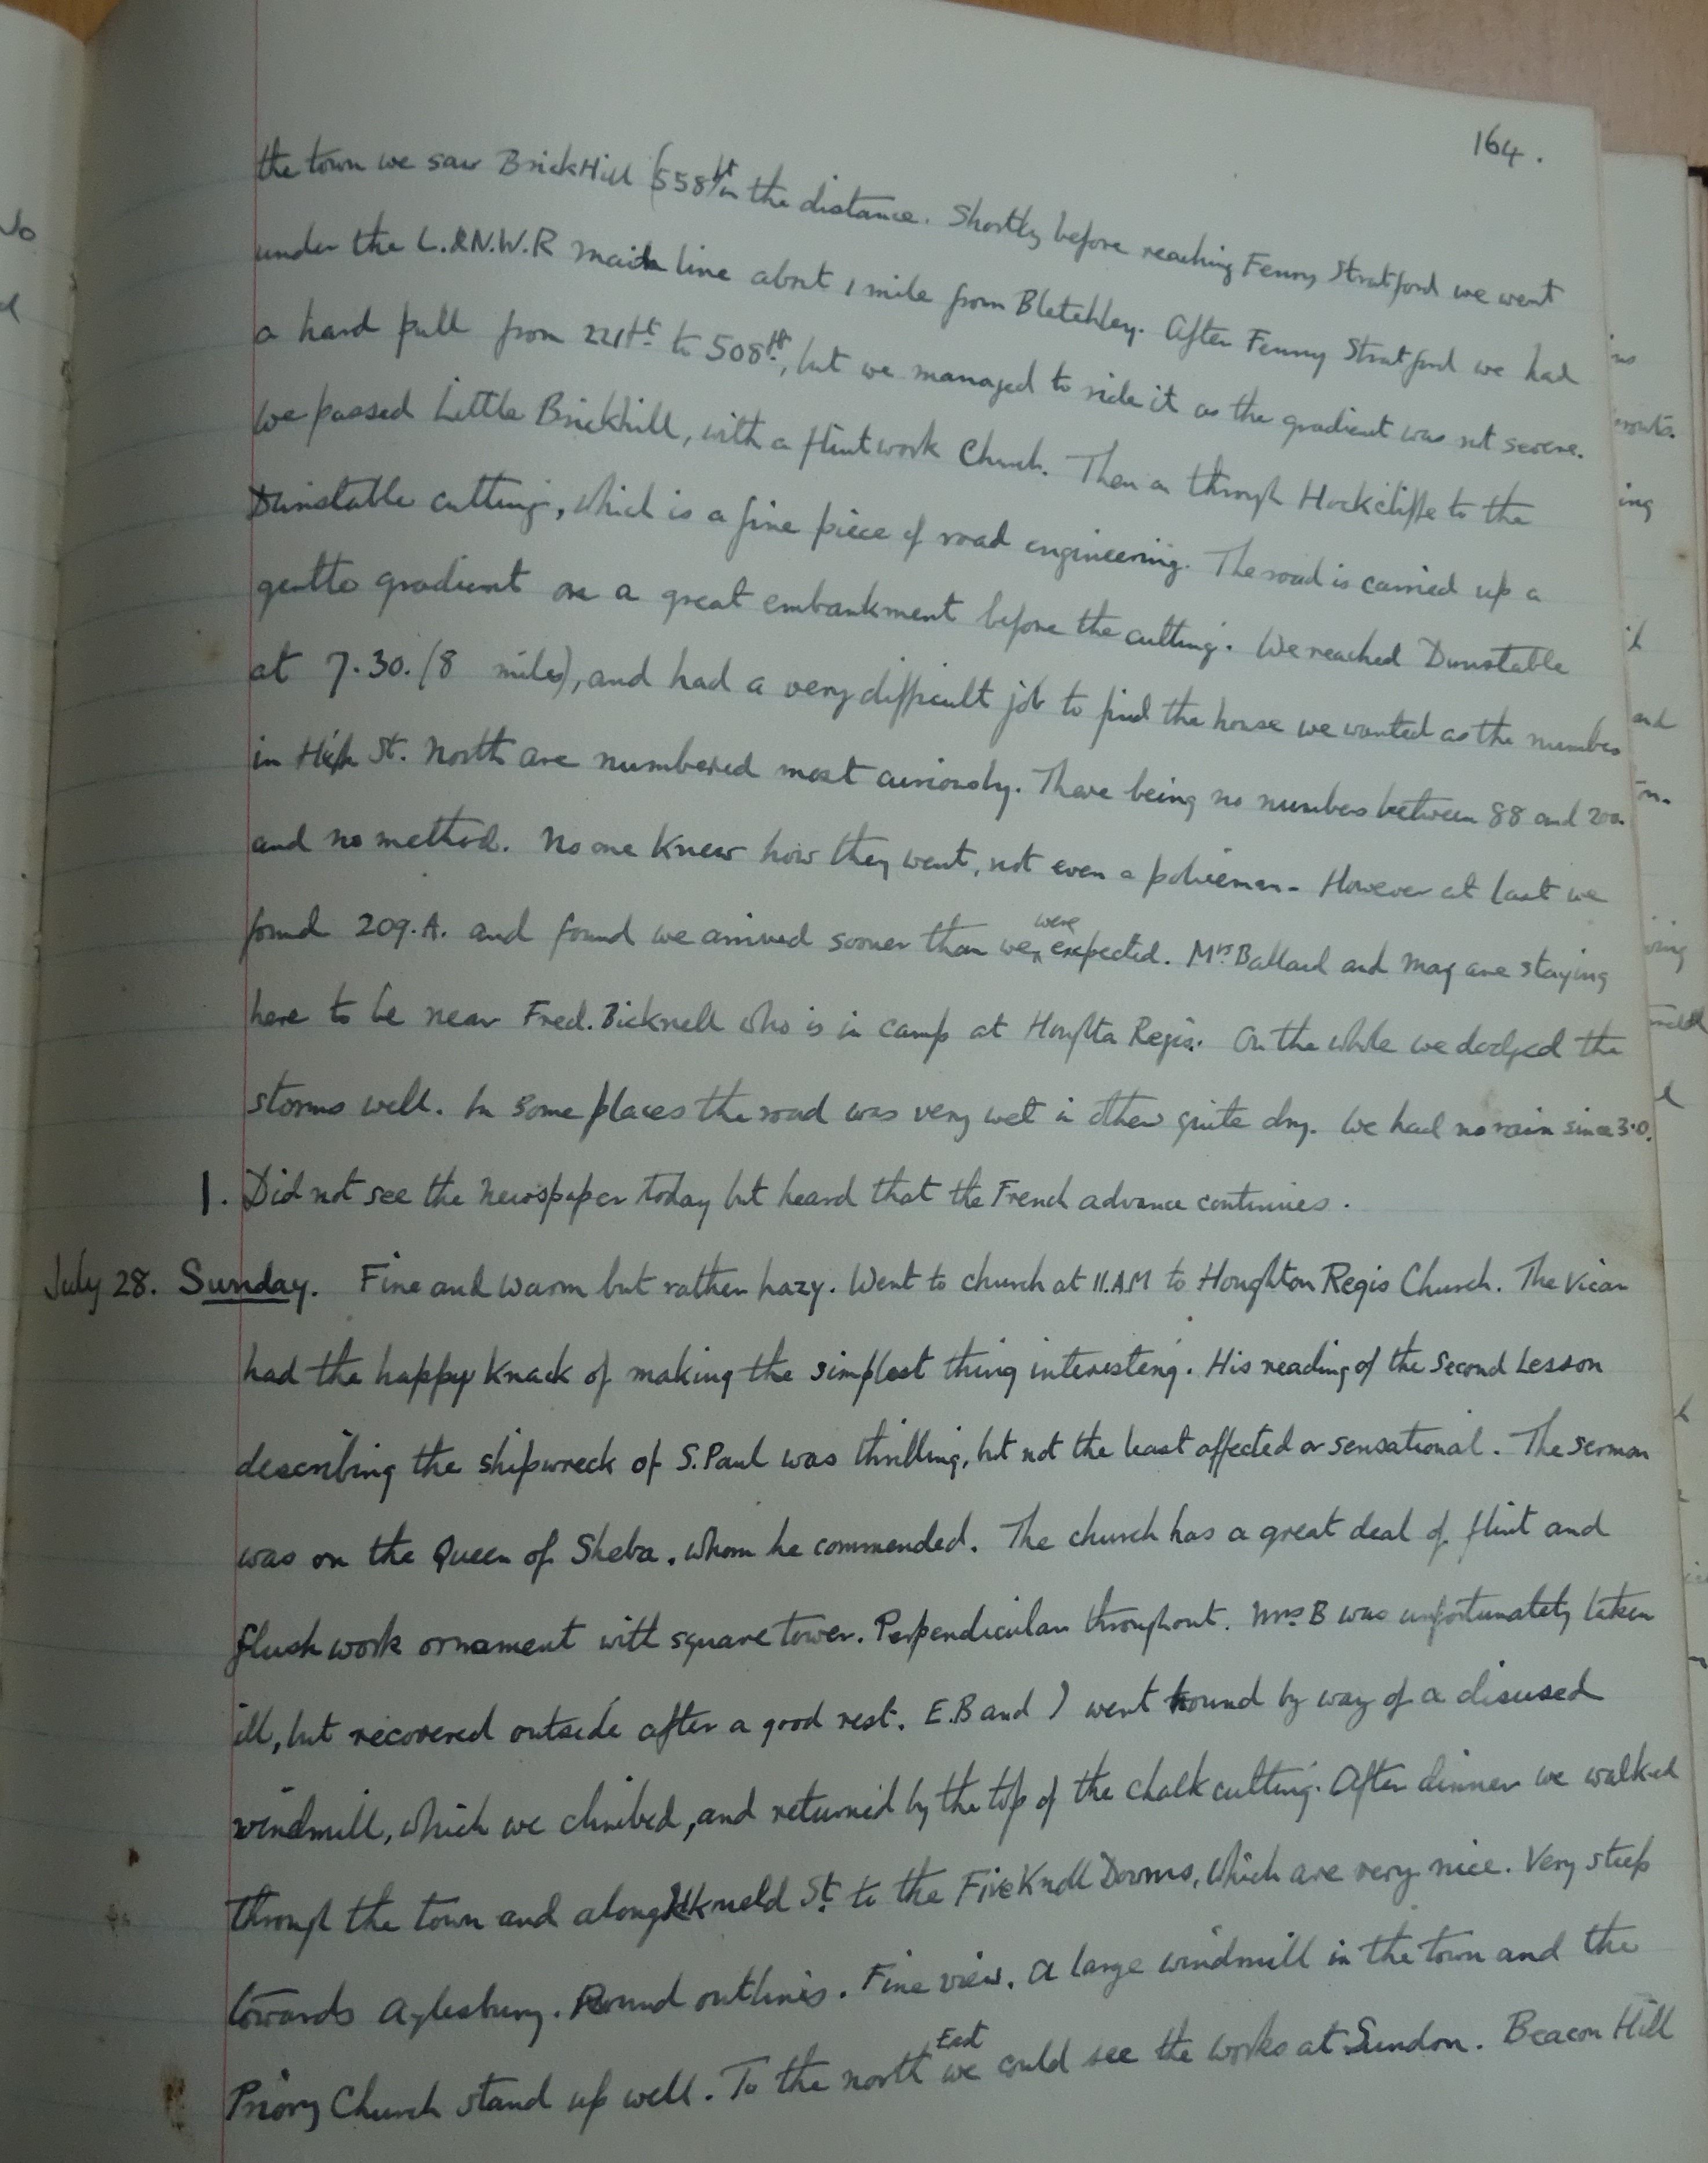 164.
the town we saw BrickHill (558ft in the distance. Shortly before reaching Fenny Stratford we went
under the L.&N.W.R main line about 1 mile from Bletchley. After Fenny Stratford we had
a hard pull from 221ft to 508ft, but we managed to ride it as the gradient was not severe.
We passed Little Brickhill, with a flintwork Church. Then on through Hockcliffe to the
Dunstable cutting, which is a fine piece of road engineering. The road is carried up a
gentle gradient on a great embankment before the cutting. We reached Dunstable
at 7.30. (8 miles), and had a very difficult job to find the house we wanted as the number
in High St. North are numbered most curiously. There being no numbers between 88 and 200.
and no method. No one knew how they went, not even a policeman. However at last we
found 209.A. and found we arrived sooner than we were expected. Mrs Ballard and May are staying
here to be near Fred. Bicknell who is in camp at Houghton Regis. On the whole we dodged the
storms well. In some places the road was very wet in other quite dry. We had no rain since 3.0.
1. Did not see the Newspaper today but heard that the French advance continues.
July 28. Sunday. Fine and warm but rather hazy. Went to church at 11.A.M to Houghton Regis Church. The Vicar
had the happy knack of making the simplest thing interesting. His reading of the Second Lesson
describing the shipwreck of S. Paul was thrilling, but not the least affected or sensational. The sermon
was on the Queen of Sheba, whom he commended. The church has a great deal of flint and
flush work ornament with square tower. Perpendicular throughout. Mrs B was unfortunately taken
ill, but recovered outside after a good rest. E.B and I went round by way of a disused
windmill, which we climbed, and returned by the top of the chalk cutting. After dinner we walked
through the town and along Ikneld St. to the Five Knoll Downs, which are very nice. Very steep
towards Aylesbury. Round outlines. Fine view. A large windmill in the town and the
Priory Church stand up well. To the north East we could see the works at Sundon. Beacon Hill